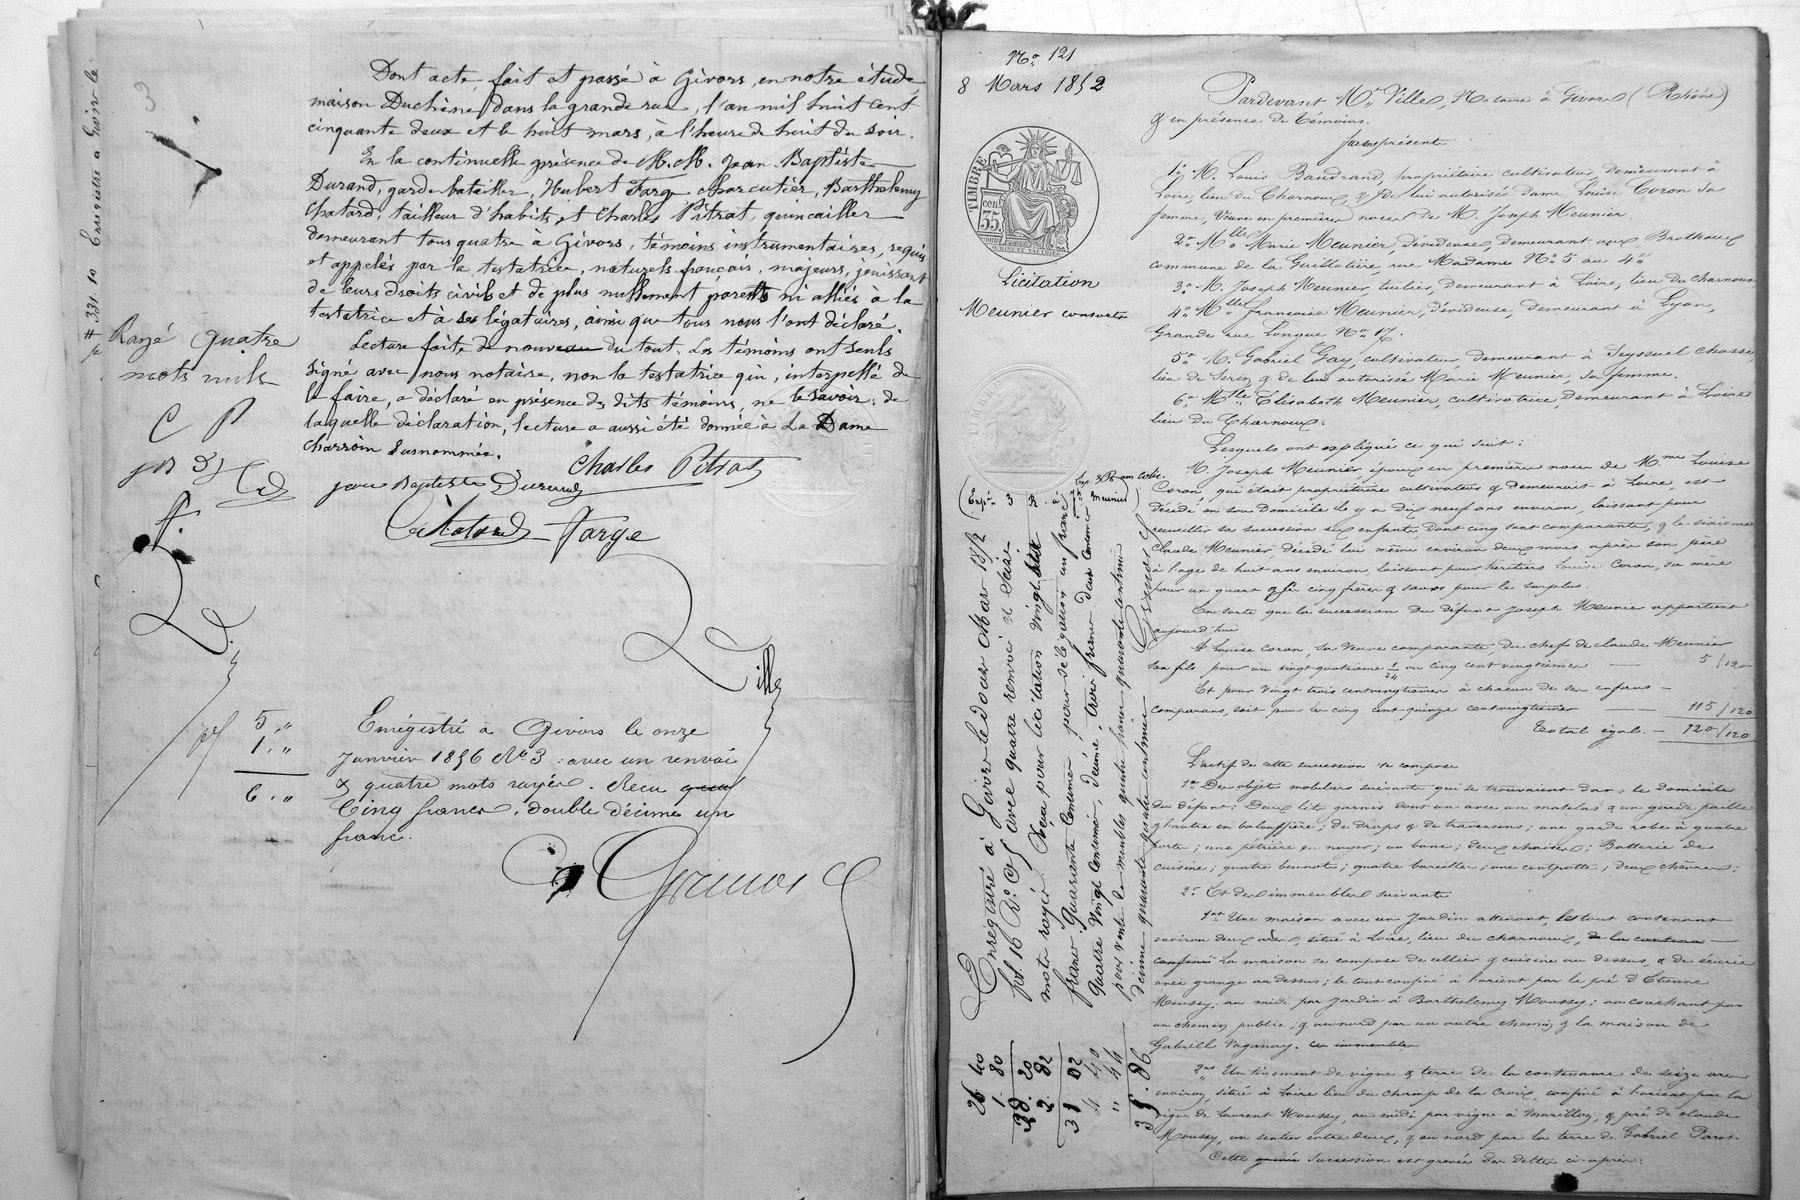 3
# 331 10
Dont acte, fait et passé à Givors, en notre étude,
maison Duchêne, dans la grande rue, l'an mil huit cent
cinquante deux et le huit mars, à l'heure de huit du soir.
En la continuelle présence de M.M. Jean Baptiste
Durand, garde batailler, Hubert Farge charcutier, Barthélemy
Chatard, tailleur d'habits, et Charles Pitrat, quincailler
demeurant tous quatre à Givors, témoins instrumentaires, requis
et appelés par la testatrice, naturels français, majeurs, jouissant
de leurs droits civils et de plus nullement parents ni alliés à la
testatrice et à ses légataires, ainsi que tous nous l'ont déclaré.
Lecture faite de nouveau du tout. Les témoins ont seuls
signé avec nous notaire, non la testatrice qui, interpellé de
le faire, a déclaré en présence des dits témoins, ne le savoir; de
laquelle déclaration, lecture a aussi été donnée à La Dame
Charroin susnommée.
Rayé quatre
mots nuls
C P
Jean Baptiste Durand Charles Pitrat
Chatard Farge
Ville
5 „
1 „
6 „
Enregistré à Givors le onze
Janvier 1856 No 3. avec un renvoi
& quatre mots rayés. Recu
Cinq francs, double décime un
franc.
No 121
8 Mars 1852
TIMBRE
35 cen
Licitation
Meunier consorts
Enregistré à Givors le douze Mars 1852
fol 16 Ro C 5 avec quatre renvois et seize
mots rayés. Reçu pour licitation vingt six
francs quarante centimes, pour
quatre vingt centimes, décime, trois francs deux centimes
pour vente de meubles quatre francs quarante centimes
décime quarante quatre centimes
26 40
1. 80
28. 20
2. 82
31 02
4 40
„ 44
35. 86
Pardevant Me Ville, Notaire à Givors (Rhône)
& en présence de témoins.
furent présents
1o M. Louis Baudrand, propriétaire cultivateur demeurant à
Loire, lieu du Charnoux, & de lui autorisée dame Louise Coron sa
femme, Veuve en premières noces de M. Joseph Meunier
2o Mlle Marie Meunier, dévideuse, demeurant aux Brotteaux
commune de la Guillotière, rue Madame No 5 au 4me
3o M. Joseph Meunier, tuilier, demeurant à Loire, lieu du Charnoux
4o Mlle Francoise Meunier, dévideuse, demeurant à Lyon,
Grande rue Longue No 17.
5o M. Gabriel Gay, cultivateur, demeurant à Seyssuel chasse
lieu de & de lui autorisée Marie Meunier, sa femme.
6o Mlle Elisabeth Meunier, cultivatrice, demeurant à Loire
lieu du Charnoux.
Lesquels ont expliqué ce qui suit:
M. Joseph Meunier époux en première noces de Mme Louise
Coron, qui était propriétaire cultivateur & demeurait à Loire, est
décédé en son domicile il y a dix neuf ans environ, laissant pour
recueillir sa succession six enfants, dont cinq sont comparants, & le sixième
Claude Meunier, décédé lui même environ deux mois après son père
à l'age de huit ans environ, laissant pour héritiers Louise Coron, sa mère
pour un quart & ses cinq frères & sœurs pour le surplus.
En sorte que la succession du défunt Joseph Meunier appartient
aujourd'hui
A Louise Coron, sa veuve comparante, du chef de Claude Meunier
son fils pour un vingt quatrième 1/24 ou cinq cent vingtièmes — 5/120
Et pour vingt trois centvingtièmes à chacun de ses enfants —
comparans, soit pour les cinq cent quinze centvingtièmes — 115/120
Total égal. — 120/120
L'actif de cette succession se compose
1o Des objets mobiliers suivants qui se trouvaient dans le domicile
du défunt: Deux lits garnis dont un avec un matelas & un garde paille
& l'autre en balouffière; de draps & de traversins; une garde robe à quatre
portes; une pétrière en noyer; un banc; deux chaises; Batterie de
cuisine; quatre bennots; quatre barilles; une ; deux chaînes;
2o Et des immeubles suivants
1ent Une maison avec un Jardin attenant, le tout contenant
environ deux ares, situé à Loire, lieu du Charnoux,
La maison se compose de cellier & cuisine au dessus, & de écurie
avec grange au dessus; le tout confiné à l'orient par le pré d'Etienne
Moussy; au midi par Jardin à Barthélemy Moussy; au couchant par
un chemin public; & au nord par un autre chemin & la maison de
Gabriel Vaganay. ces immeubles
2ent Un tènement de vigne & terre de la contenance de seize ares
environ, situé à Loire lieu du champ de la Croix, confiné à l'orient par la
vigne de Laurent Moussy, au midi par vigne à , & pré de Claude
Moussy, un sentier entre deux, & au nord par la terre de Gabriel Paret
Cette succession est grevée des dettes ci-après: